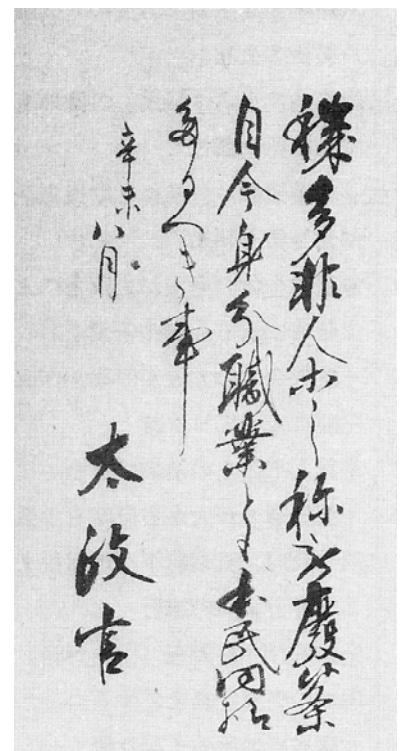 穢多非人等之称被廃候条
自今身分職業とも平民同様
たるへき事
辛未八月
太政官